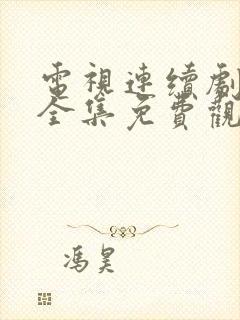 電視連續劇
全集免費觀
馮昊